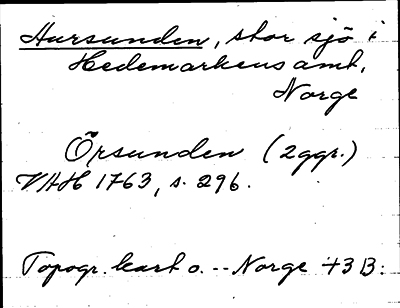 Aursunden, stor sjö i
Hedemarkens amt,
Norge
Örsunden (2 ggr.)
VAH 1763, s. 296.
Topogr. kart o. -- Norge 43 B: